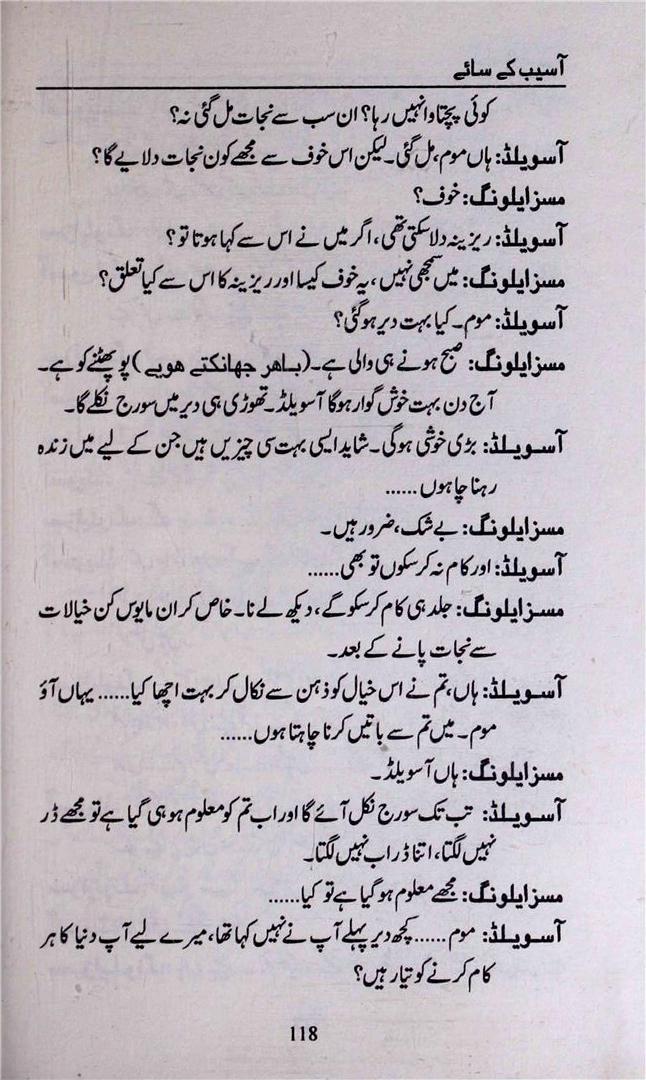 آسیب کے سائے
کوئی پچھتاوا نہیں رہا؟ ان سب سے نجات مل گئی نہ؟
آسویلڈ: ہاں موم، مل گئی۔ لیکن اس خوف سے مجھے کون نجات دلایے گا؟
مسز ایلونگ: خوف؟
آسویلڈ: ریزینہ دلا سکتی تھی، اگر میں نے اس سے کہا ہوتا تو؟
مسز ایلونگ: میں سمجھی نہیں، یہ خوف کیسا اور ریزینہ کا اس سے کیا تعلق؟
آسویلڈ: موم۔ کیا بہت دیر ہو گئی؟
مسز ایلونگ: صبح ہونے ہی والی ہے۔ (باھر جھانکتے ھویے) پو پھٹنے کو ہے۔
آج دن بہت خوش گوار ہوگا آسویلڈ۔ تھوڑی ہی دیر میں سورج نکلے گا۔
آسویلڈ: بڑی خوشی ہوگی۔ شاید ایسی بہت سی چیزیں ہیں جن کے لیے میں زندہ
رہنا چاہوں ......
مسز ایلونگ: بے شک، ضرور ہیں۔
آسویلڈ: اور کام نہ کرسکوں تو بھی ......
مسز ایلونگ: جلد ہی کام کرسکو گے، دیکھ لے نا۔ خاص کر ان مایوس کن خیالات
سے نجات پانے کے بعد۔
آسویلڈ: ہاں، تم نے اس خیال کو ذہن سے نکال کر بہت اچھا کیا ...... یہاں آؤ
موم۔ میں تم سے باتیں کرنا چاہتا ہوں ......
مسز ایلونگ: ہاں آسویلڈ۔
آسویلڈ: تب تک سورج نکل آئے گا اور اب تم کو معلوم ہو ہی گیا ہے تو مجھے ڈر
نہیں لگتا، اتنا ڈر اب نہیں لگتا۔
مسز ایلونگ: مجھے معلوم ہو گیا ہے تو کیا ......
آسویلڈ: موم ...... کچھ دیر پہلے آپ نے نہیں کہا تھا، میرے لیے آپ دنیا کا ہر
کام کرنے کو تیار ہیں؟
118